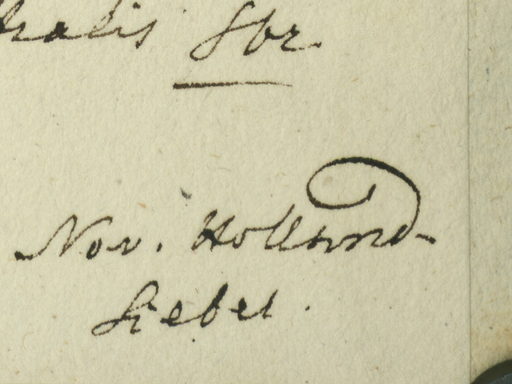 tralis Sbr.
Nov. Holland
Sieber.